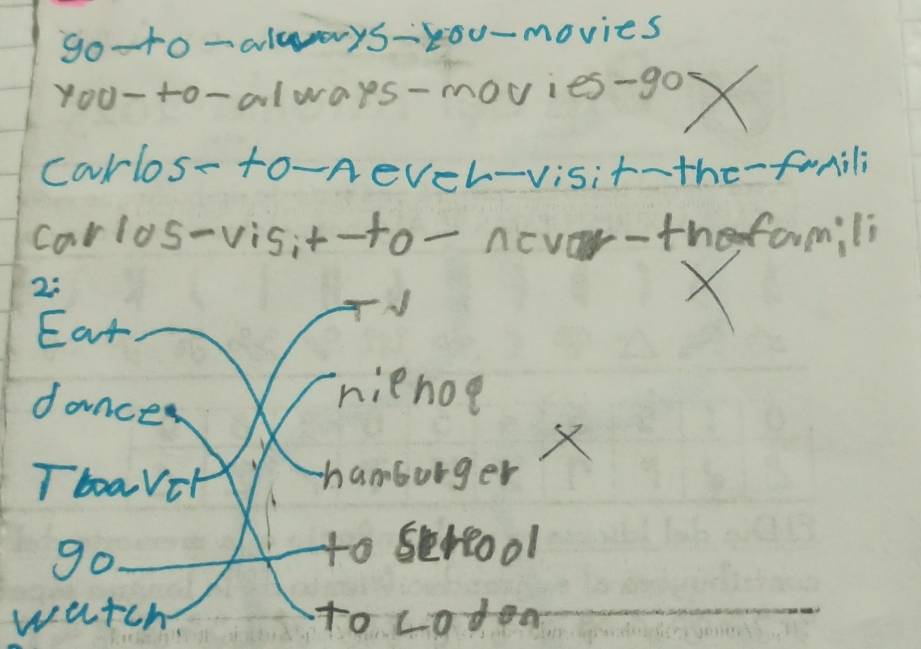 go-to-always-you-movies
you-to-always-movies-go
Carlos-to-never-visit-the-famili
carlos-visit-to-never-the famili
2:
Eat TV
dance
hamburger
go to school
watch to Lodon